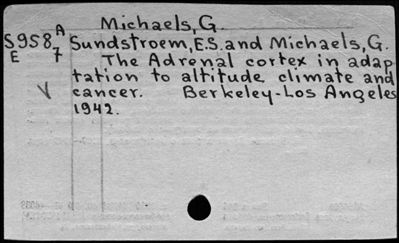 Michaels, G.
S958 A
E 7
Sundstroem, E.S. and Michaels, G.
The Adrenal cortex in adap
tation to altitude climate and
cancer. Berkeley-Los Angeles
1942.
V